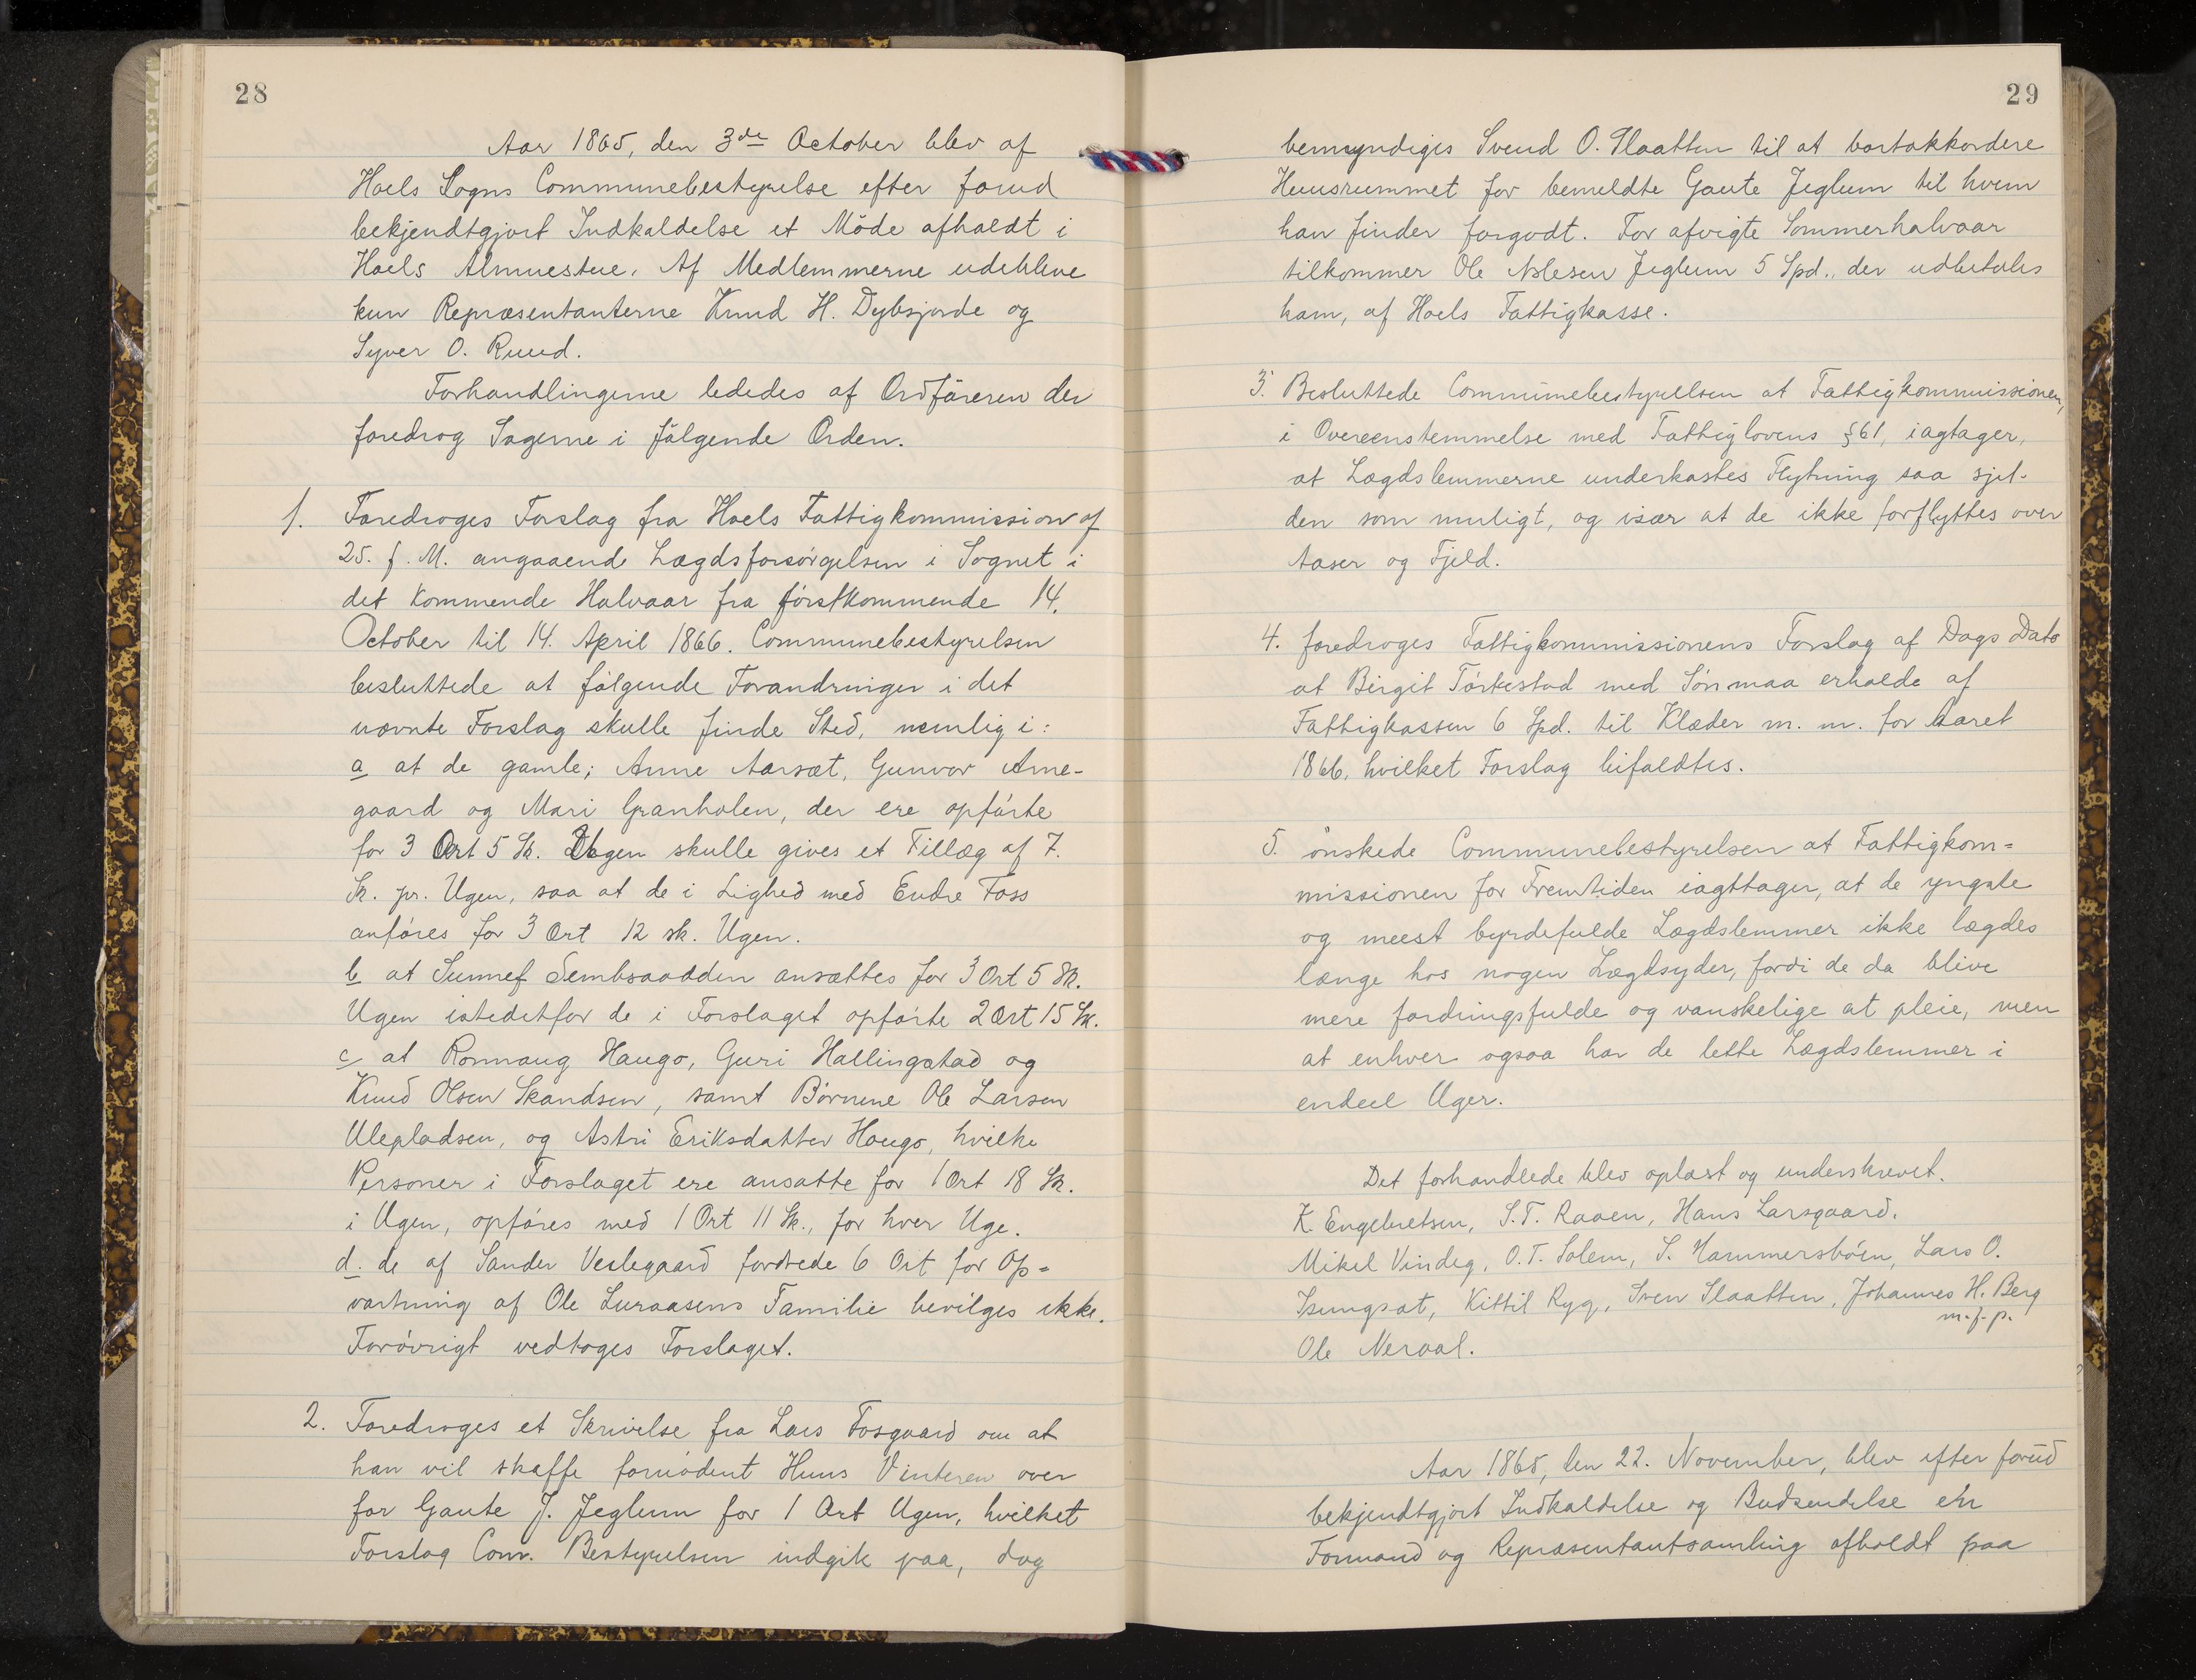 28
Aar 1865, den 3de October blev af
Hoels Sogns Communebestyrelse efter forud
bekjendtgjort Indkaldelse et Möde afholdt i
Hoels Almuestue. Af Medlemmerne udebleve
kun Repræsentanterne Knud H. Dybsjorde og
Syver O. Ruud.
Forhandlingerne lededes af Ordföreren der
foredrog Sagerne i fölgende Orden.
1. Foredroges Forslag fra Hoels Fattigkommission af
25. f. M. angaaende Lægdsforsörgelsen i Sognet i
det kommende Halvaar fra förstkommende 14.
October til 14. April 1866. Communebestyrelsen
besluttede at fölgende Forandringer i det
nævnte Forslag skulle finde Sted, nemlig i:
a at de gamle; Anne Aarsæt, Gunvor Ame-
gaard og Mari Granholen, der ere opförte
for 3 Ort 5 Sk. Ugen skulle gives et Tillæg af 7.
Sk. pr. Ugen, saa at de i Lighed med Endre Foss
anföres for 3 Ort 12 sk. Ugen.
b at Sunnef Sembsaadden ansættes for 3 Ort 5 Sk.
Ugen istedetfor de i Forslaget opförte 2 Ort 15 Sk.
c at Ronnaug Haugo, Guri Hallingstad og
Knud Olsen Skandsen, samt Börnene Ole Larsen
Ulepladsen, og Astri Eriksdatter Haugo, hvilke
Personer i Forslaget ere ansatte for 1 Ort 18 Sk.
i Ugen, opföres med 1 Ort 11 Sk., for hver Uge.
d. de af Sander Veslegaard fordrede 6 Ort for Op=
vartning af Ole Luraasens Familie bevilges ikke.
Forövrigt vedtoges Forslaget.
2. Foredroges et Skrivelse fra Lars Fosgaard om at
han vil skaffe fornödent Huus Vinteren over
for Gaute J. Jeglum for 1 Ort Ugen, hvilket
Forslag Com. Bestyrelsen indgik paa, dog
29
bemyndiges Svend O. Slaatten til at bortakkordere
Huusrummet for bemeldte Gaute Jeglum til hvem
han finder forgodt. For afvigte Sommerhalvaar
tilkommer Ole Jeglum 5 Spd., der udbetales
ham, af Hoels Fattigkasse.
3. Besluttede Communebestyrellsen at Fattigkommissionen,
i Overeenstemmelse med Fattiglovens §61, iagtager,
at Lægdslemmerne underkastes Flytning saa sjel-
den som muligt, og især at de ikke forflyttes over
Aaser og Fjeld.
4. foredroges Fattigkommissionens Forslag af Dags Dato
at Birgit Törkestad med Sön maa erholde af
Fattigkassen 6 Spd. til Klæder m. m. for Aaret
1866, hvilket Forslag bifaldtes.
5. önskede Communebestyrelsen at Fattigkom=
missionen for Fremtiden iagttager, at de yngste
og meest byrdefulde Lægdslemmer ikke lægdes
længe hos nogen Lægdsyder, fordi de da blive
mere fordringsfulde og vanskelige at pleie, men
at enhver ogsaa har de lette Lægdslemmer i
endeel Uger.
Det forhandlede blev oplæst og underskrevet.
K. Engebretsen, S.T. Raaen, Hans Larsgaard.
Mikel Vindeg, O.T. Solem, S. Hammersböen, Lars O.
Isungsæt, Kittil Ryg, Sven Slaatten, Johannes H. Berg
m.f.p.
Ole Neraal.
Aar 1865, den 22. November, blev efter forud
bekjendtgjort Indkaldelse og Budsendelse en
Formand og Repræsentantsamling afholdt paa